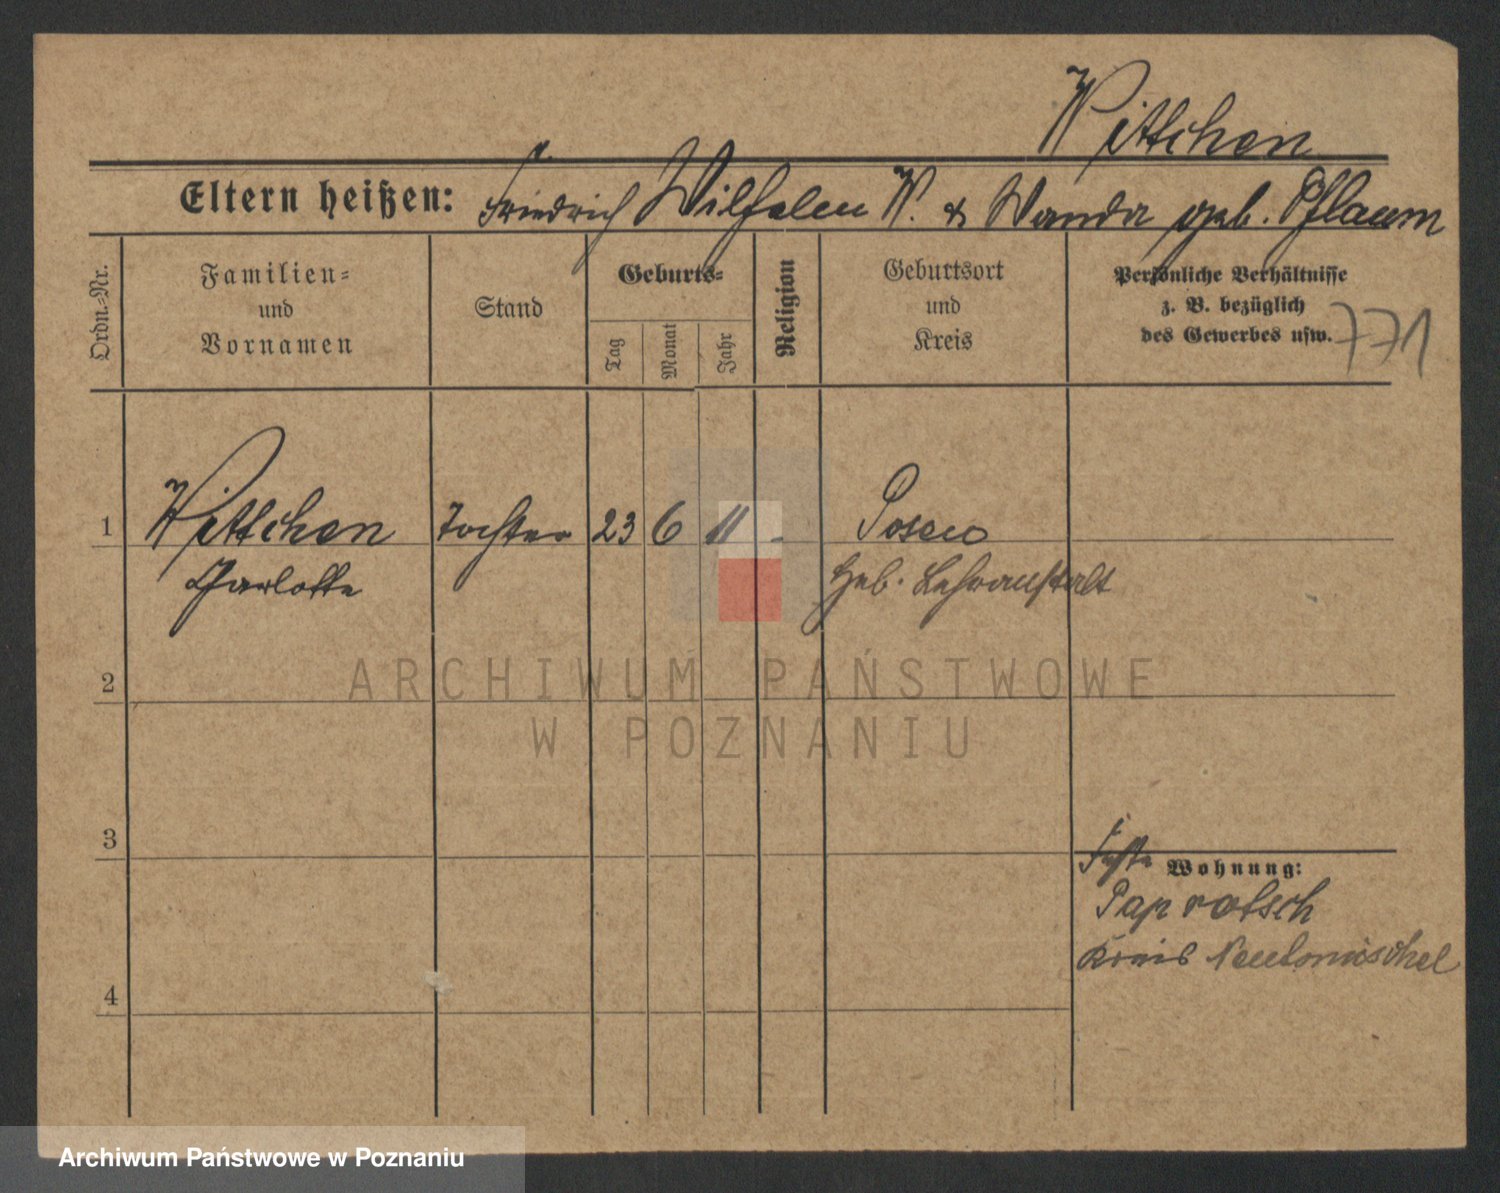 Wittchen
Eltern heißen: Friedrich Wilhelm W. & Wanda geb. Pflaum
Ordn.-Nr.
Familien-
und
Vornamen
Stand
Geburts-
Tag
Monat
Jahr
Religion
Geburtsort
und
Kreis
Persönliche Verhältnisse
z. B. bezüglich
des Gewerbes usw.
771
1 Wittchen Tochter 23 6 11 - Posen
Charlotte Heb. Lehranstalt
2
ARCHIWUM PAŃSTWOWE
W POZNANIU
3
Wohnung:
Paprotsch
Kreis Neutomischel
4
Archiwum Państwowe w Poznaniu